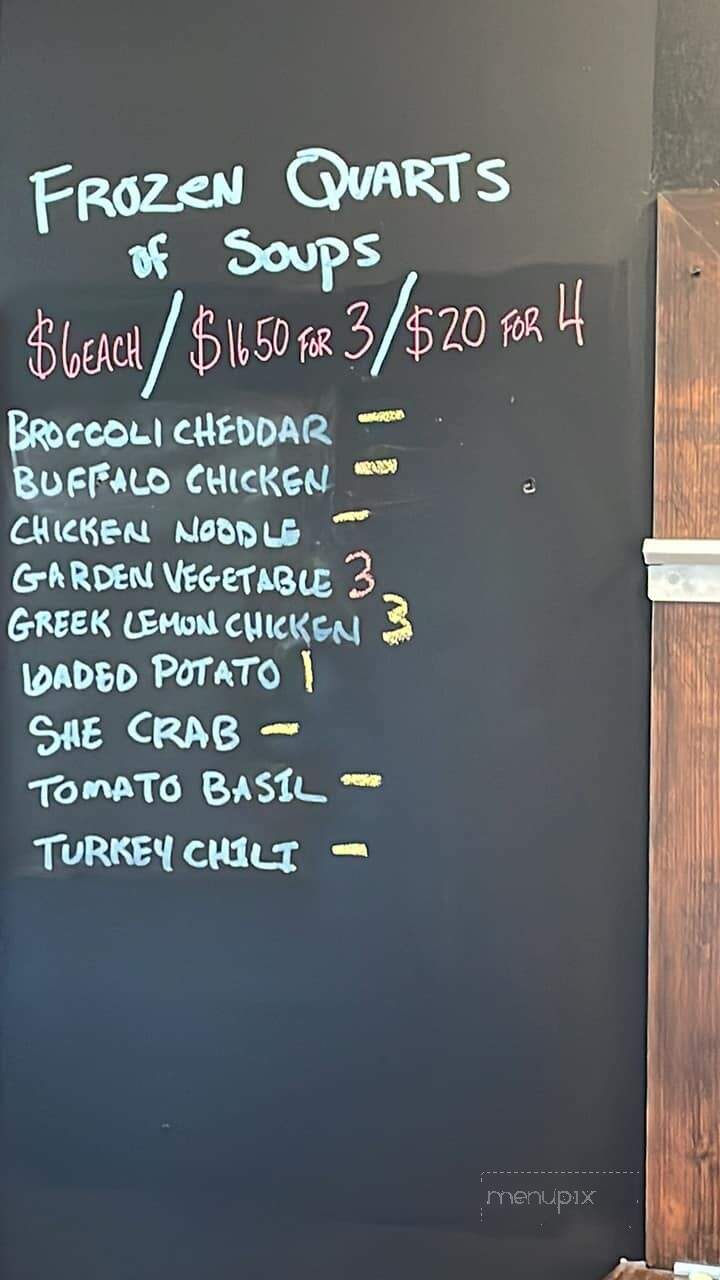 FROZEN QUARTS
of SOUPS
$6 EACH / $16 50 FOR 3 / $20 FOR 4
BROCCOLI CHEDDAR —
BUFFALO CHICKEN —
CHICKEN NOODLE —
GARDEN VEGETABLE 3
GREEK LEMON CHICKEN 3
LOADED POTATO 1
SHE CRAB —
TOMATO BASIL —
TURKEY CHILI —
menupix